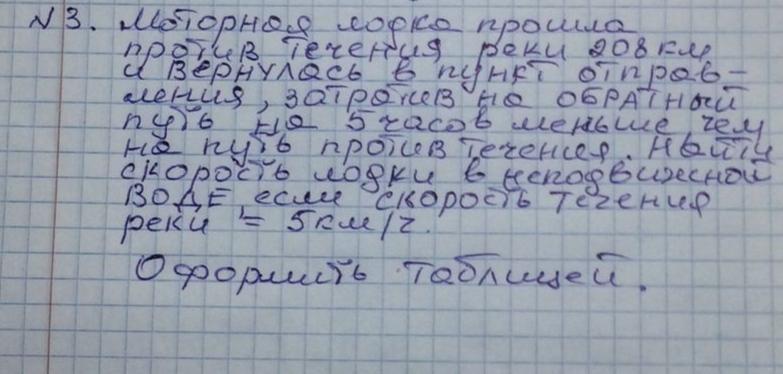 N 3. Моторная лодка прошла
против течения реки 208 км
и вернулась в пункт отправ-
ления, затратив на обратный
путь на 5 часов меньше чем
на путь против течения. Найти
скорость лодки в неподвижной
воде, если скорость течения
реки = 5 км/ч.
Оформить таблицей.